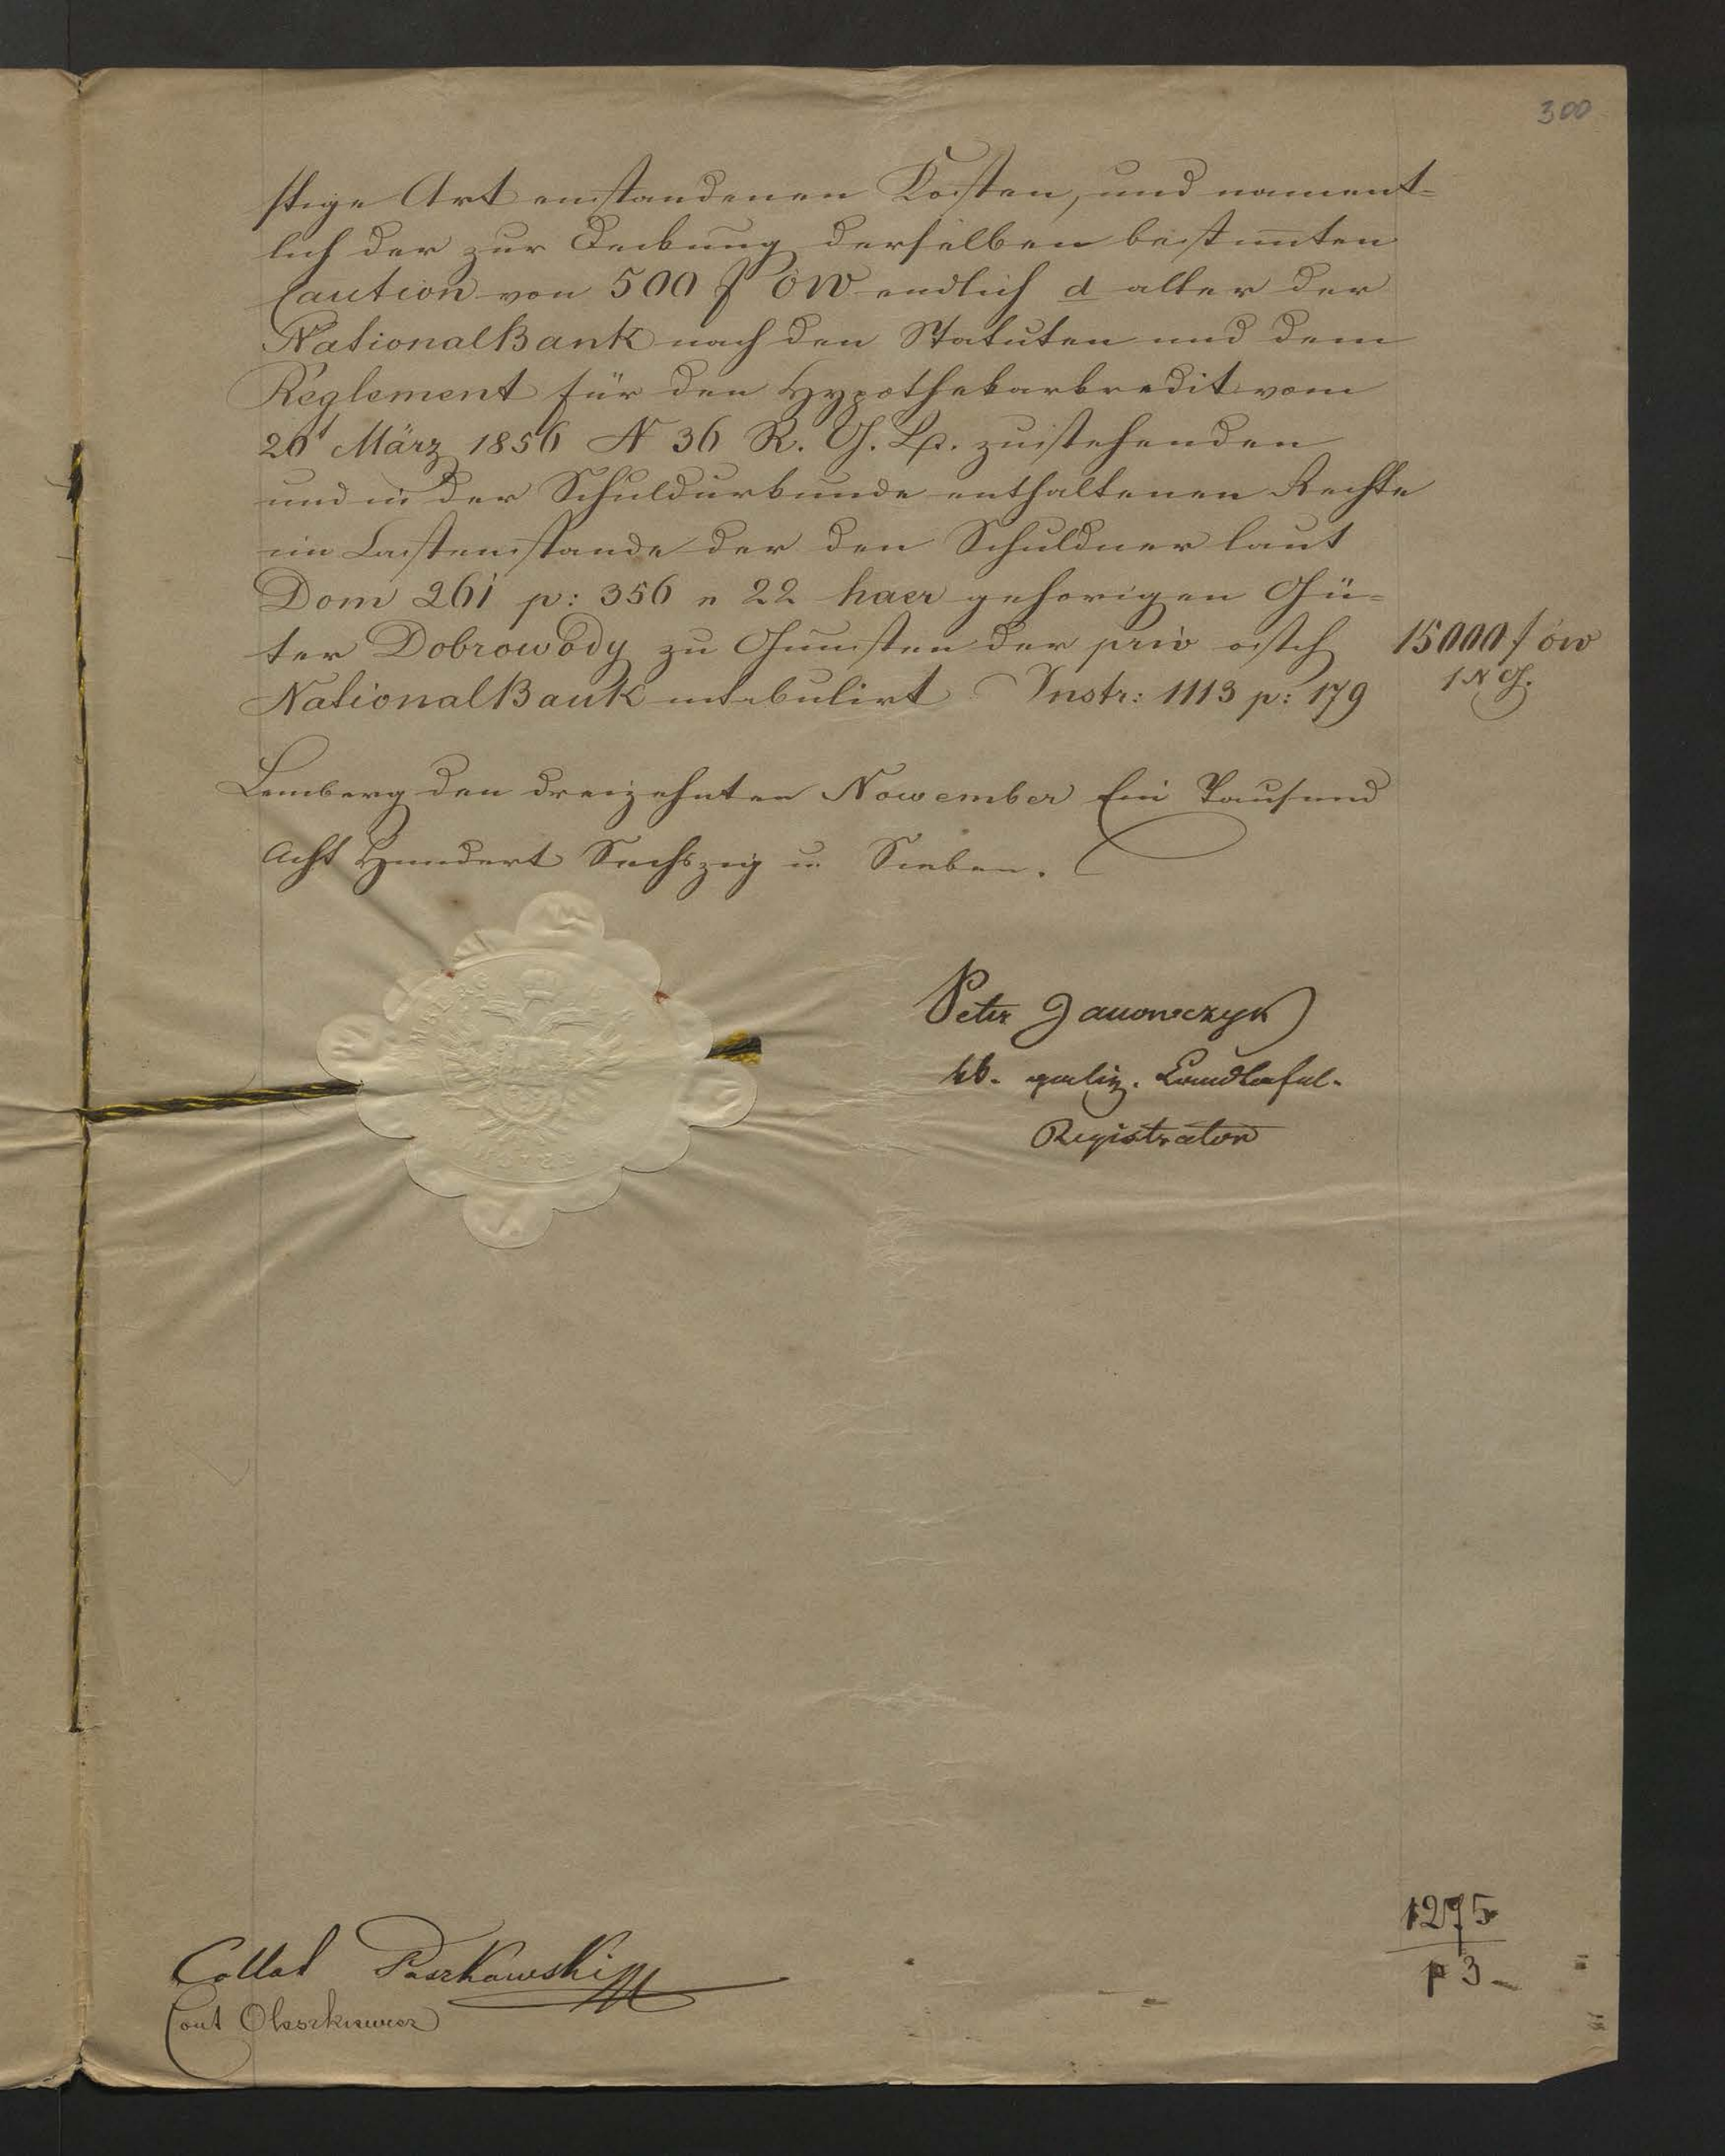 300
stige Art enstandenen Kosten, und nament-
lich der zur Deckung derselben bestimten
Caution von 500 f ÖW endlich d aller der
NationalBank nach den Statuten und dem
Reglement für den Hypothekarkredit vom
20t März 1856 N 36 R. G. B. zuistehenden
und in der Schuldurkunde enthaltenen Rechte
im Lastenstande der den Schuldner laut
Dom 261 p: 356 n 22 haer gehörigen Gü-
ter Dobrowody zu Gunsten der priv östch
15000 f öw
NationalBank intabulirt Instr: 1113 p: 179
1 N G.
Lemberg den dreizehnten November Ein Tausend
Acht Hundert Sechszig u Sieben.
Peter Janowczyk
kk. galiz. Landtafel-
Registrator
1275
p 3
Collat Paszkowski
Cont